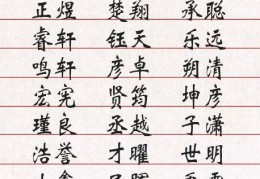 正煜 楚翔 承聪
睿轩 钰天 乐远
鸣轩 彦卓 朔清
宏宪 贤筠 坤彦
瑾良 丞越 子潇
浩誉 才曜 世明